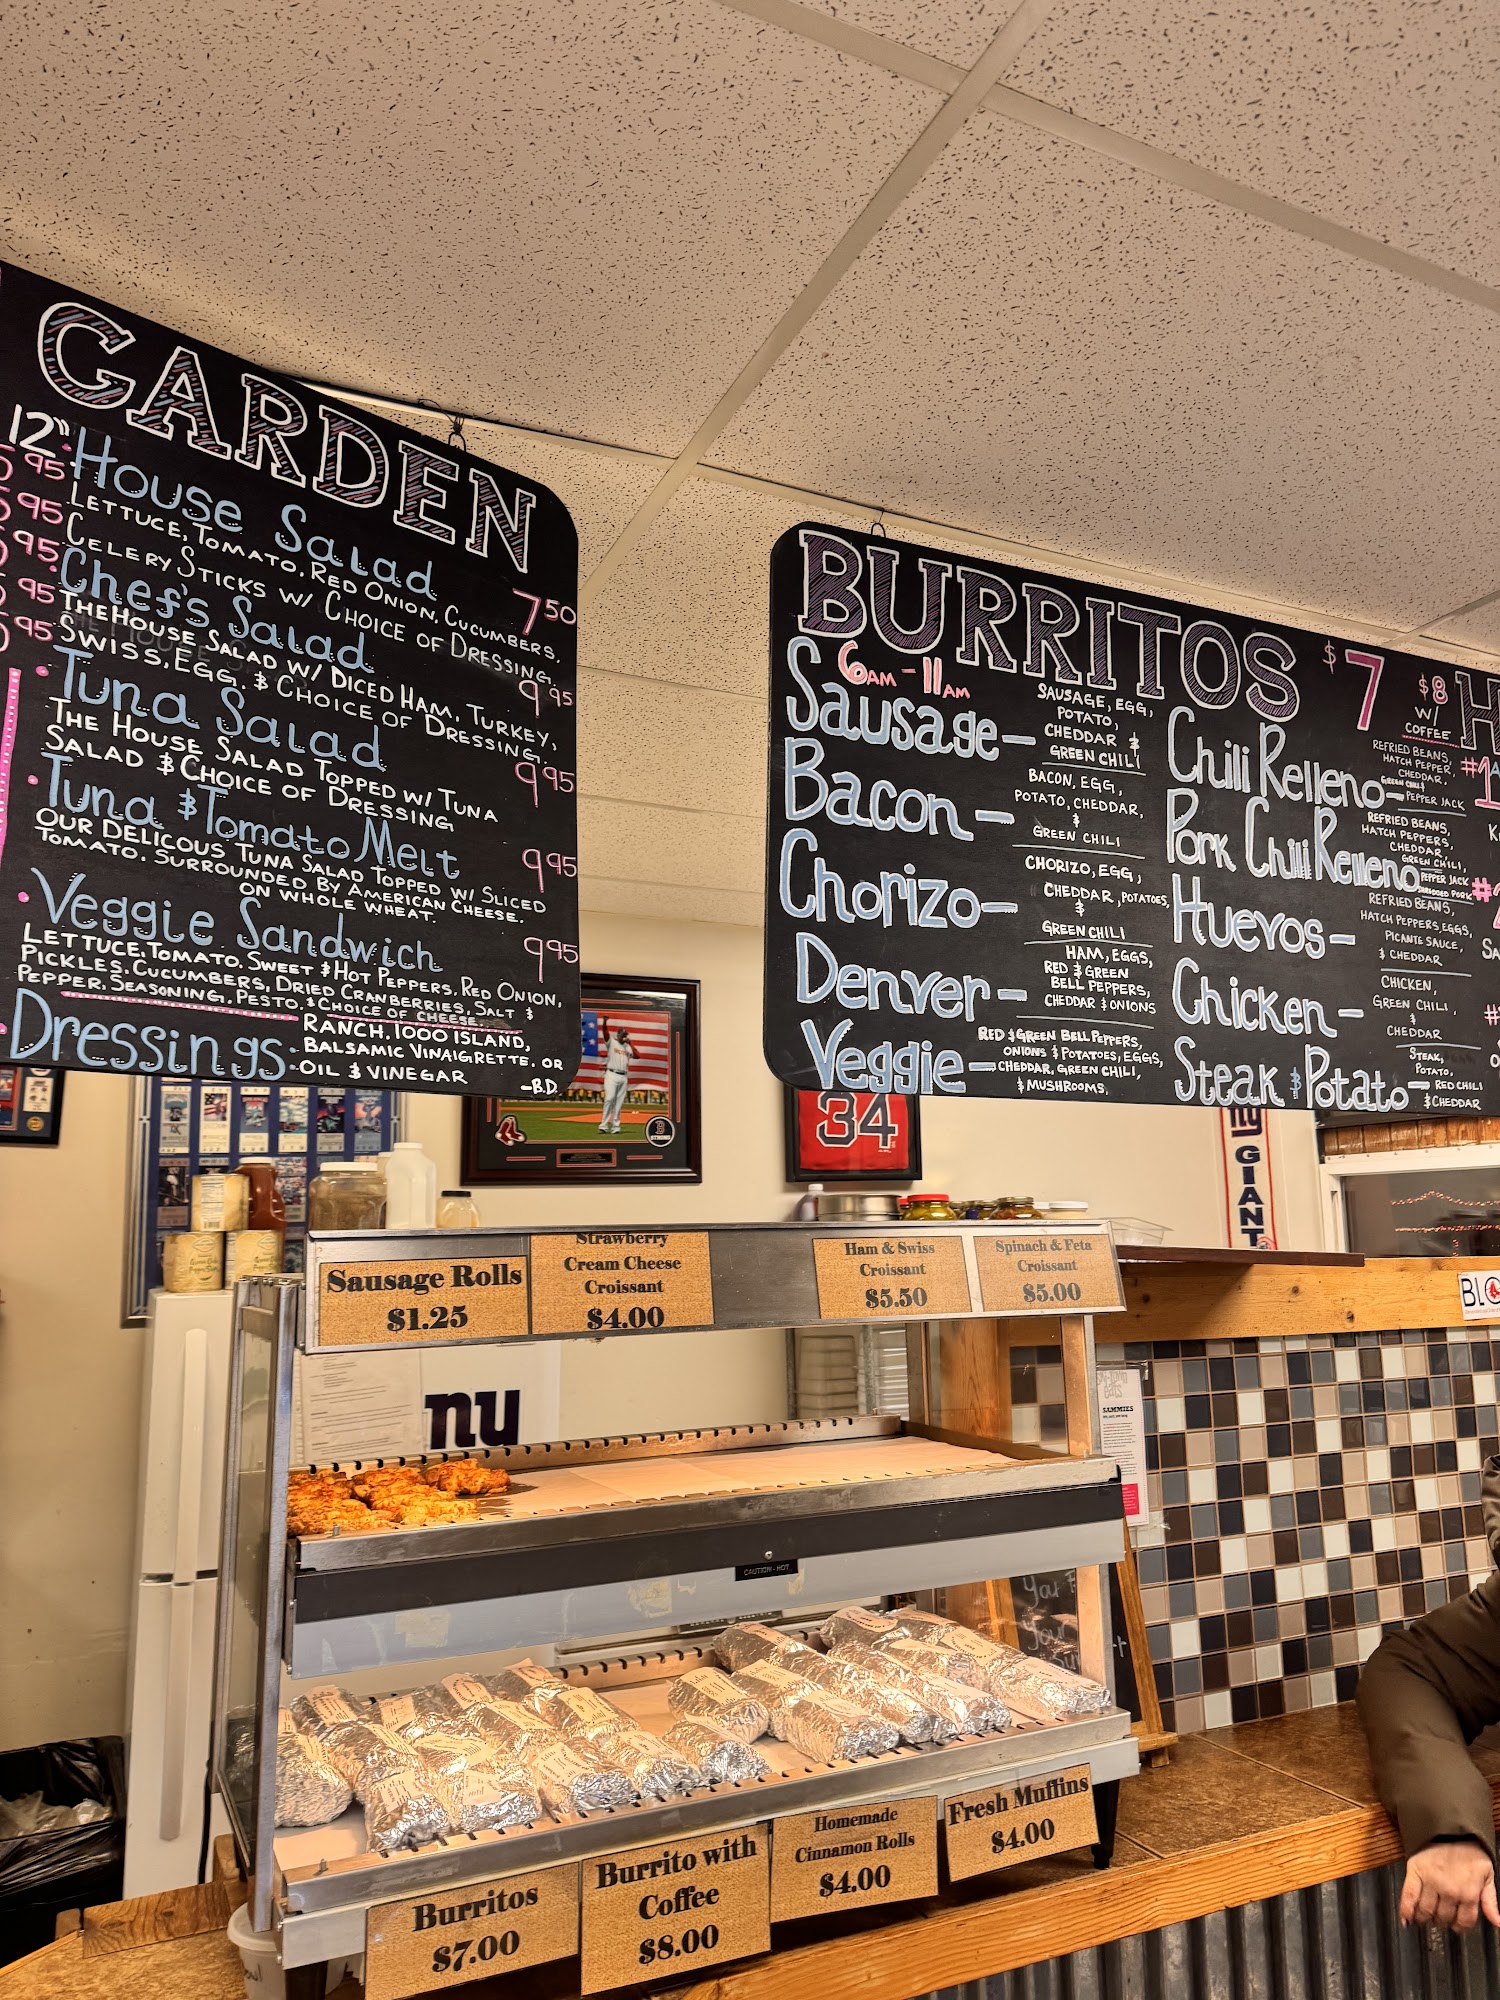 GARDEN
12"
95
House Salad
Lettuce, Tomato, Red Onion, Cucumbers,
7 50
95
Celery Sticks w/ Choice of Dressing.
95
Chef's Salad
The House Salad w/ Diced Ham, Turkey,
9 95
95
Swiss, Egg, & Choice of Dressing.
95
Tuna Salad
The House Salad Topped w/ Tuna
9 95
Salad & Choice of Dressing
Tuna & Tomato Melt
Our Delicous Tuna Salad Topped w/ Sliced
9 95
Tomato. Surrounded By American Cheese.
on Whole Wheat.
Veggie Sandwich
9 95
Lettuce, Tomato, Sweet & Hot Peppers, Red Onion,
Pickles, Cucumbers, Dried Cranberries, Salt &
Pepper, Seasoning, Pesto, & Choice of Cheese.
Dressings - Ranch, 1000 Island,
Balsamic Vinaigrette, or
Oil & Vinegar
-B.D.
BURRITOS $7
$8
w/
Coffee
6AM - 11AM
Sausage - Sausage, Egg,
Potato,
Cheddar &
Green Chili
Bacon - Bacon, Egg,
Potato, Cheddar,
&
Green Chili
Chorizo - Chorizo, Egg,
Cheddar, Potatoes,
&
Green Chili
Denver - Ham, Eggs,
Red & Green
Bell Peppers,
Cheddar & Onions
Veggie - Red & Green Bell Peppers,
Onions & Potatoes, Eggs,
Cheddar, Green Chili,
& Mushrooms.
Chili Relleno - Refried Beans,
Hatch Pepper,
Cheddar,
Green Chili
Pepper Jack
Pork Chili Relleno - Refried Beans,
Hatch Peppers,
Cheddar,
Green Chili,
Pepper Jack
Shredded Pork
Huevos - Refried Beans,
Hatch Peppers, Eggs,
Picante Sauce,
& Cheddar
Chicken - Chicken,
Green Chili,
&
Cheddar
Steak & Potato - Steak,
Potato,
Red Chili
& Cheddar
H
#1
34
B
STRONG
ny
GIANT
Sausage Rolls
$1.25
Strawberry
Cream Cheese
Croissant
$4.00
Ham & Swiss
Croissant
$5.50
Spinach & Feta
Croissant
$5.00
ny
CAUTION - HOT
SAMMIES
Burritos
$7.00
Burrito with
Coffee
$8.00
Homemade
Cinnamon Rolls
$4.00
Fresh Muffins
$4.00